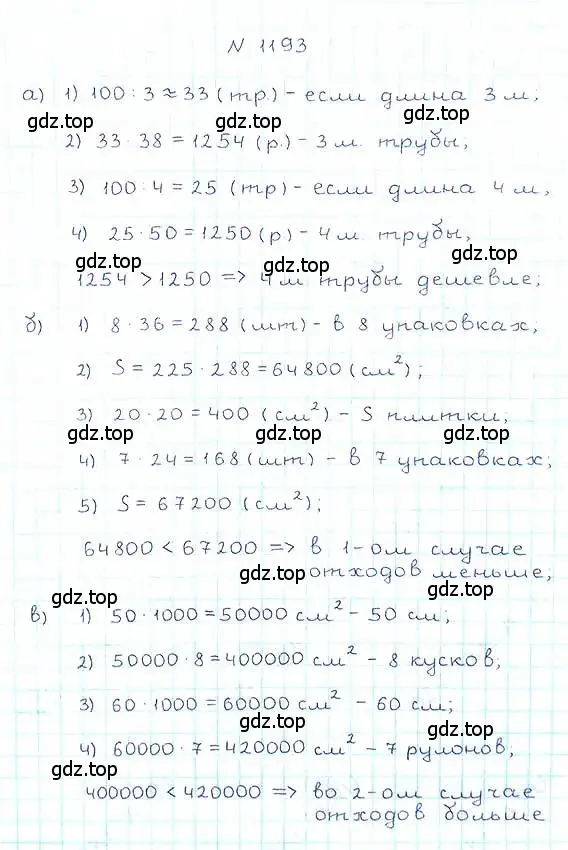 N 1193
а) 1) 100 : 3 ≈ 33 (тр.) - если длина 3 м;
gdz.top gdz.top gdz.top
2) 33 · 38 = 1254 (р.) - 3 м. трубы;
3) 100 : 4 = 25 (тр) - если длина 4 м,
4) 25 · 50 = 1250 (р) - 4 м. трубы,
gdz.top gdz.top gdz.top
1254 > 1250 => 4 м трубы дешевле;
б) 1) 8 · 36 = 288 (шт) - в 8 упаковках,
2) S = 225 · 288 = 64800 (см²);
3) 20 · 20 = 400 (см²) - S плитки;
gdz.top gdz.top gdz.top
4) 7 · 24 = 168 (шт) - в 7 упаковках;
5) S = 67200 (см²);
64800 < 67200 => в 1-ом случае
gdz.top отходов меньше;
gdz.top
в) 1) 50 · 1000 = 50000 см² - 50 см;
2) 50000 · 8 = 400000 см² - 8 кусков;
3) 60 · 1000 = 60000 см² - 60 см;
gdz.top gdz.top
4) 60000 · 7 = 420000 см² - 7 рулонов;
gdz.top
400000 < 420000 => во 2-ом случае
отходов больше
gdz.top